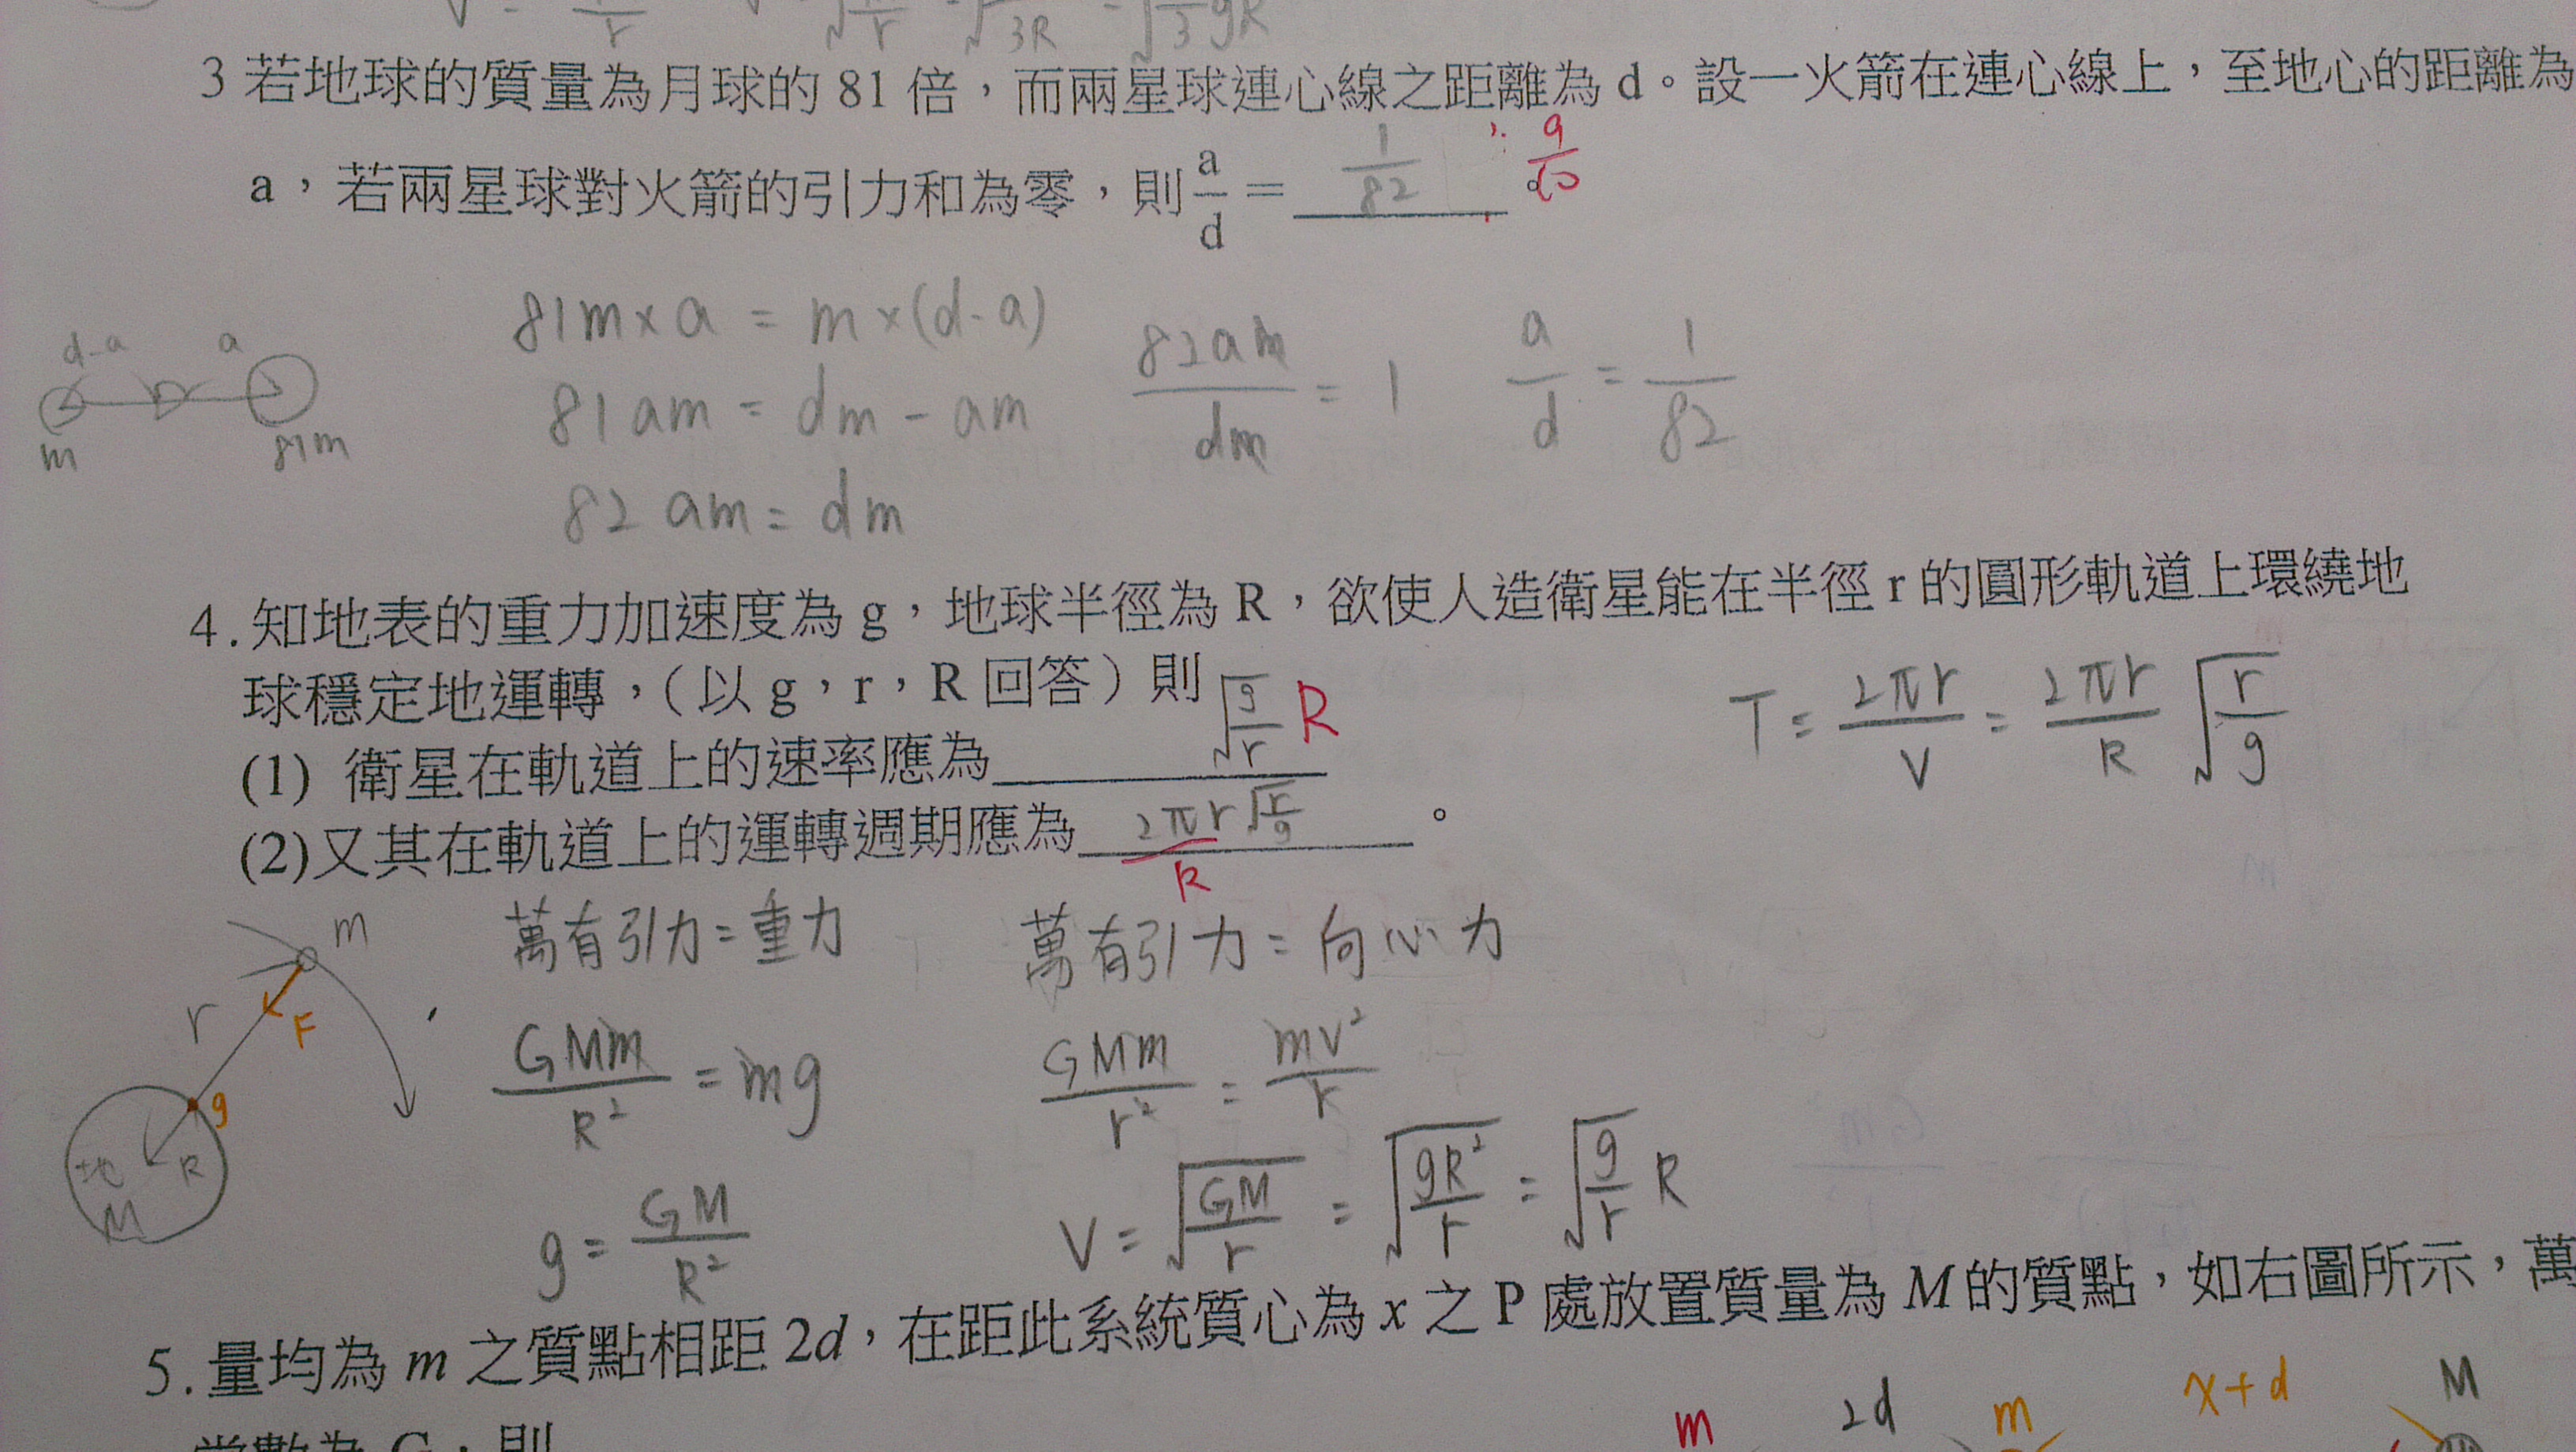 3 若地球的質量為月球的 81 倍，而兩星球連心線之距離為 d。設一火箭在連心線上，至地心的距離為
a，若兩星球對火箭的引力和為零，則 a/d = 1/82 9/10
d-a a
m 81m
81m×a = m×(d-a)
81am = dm - am
82am = dm
82am/dm = 1 a/d = 1/82
4.知地表的重力加速度為 g，地球半徑為 R，欲使人造衛星能在半徑 r 的圓形軌道上環繞地
球穩定地運轉，（以 g，r，R 回答）則
(1) 衛星在軌道上的速率應為 √(g/r) R
(2)又其在軌道上的運轉週期應為 2πr√(r/g) / R 。
T = 2πr/V = 2πr/R √(r/g)
m
r
F
g
地 R
M
萬有引力=重力
GMm/R² = mg
g = GM/R²
萬有引力=向心力
GMm/r² = mV²/r
V = √(GM/r) = √(gR²/r) = √(g/r) R
5.量均為 m 之質點相距 2d，在距此系統質心為 x 之 P 處放置質量為 M 的質點，如右圖所示，萬
m 2d m x+d M